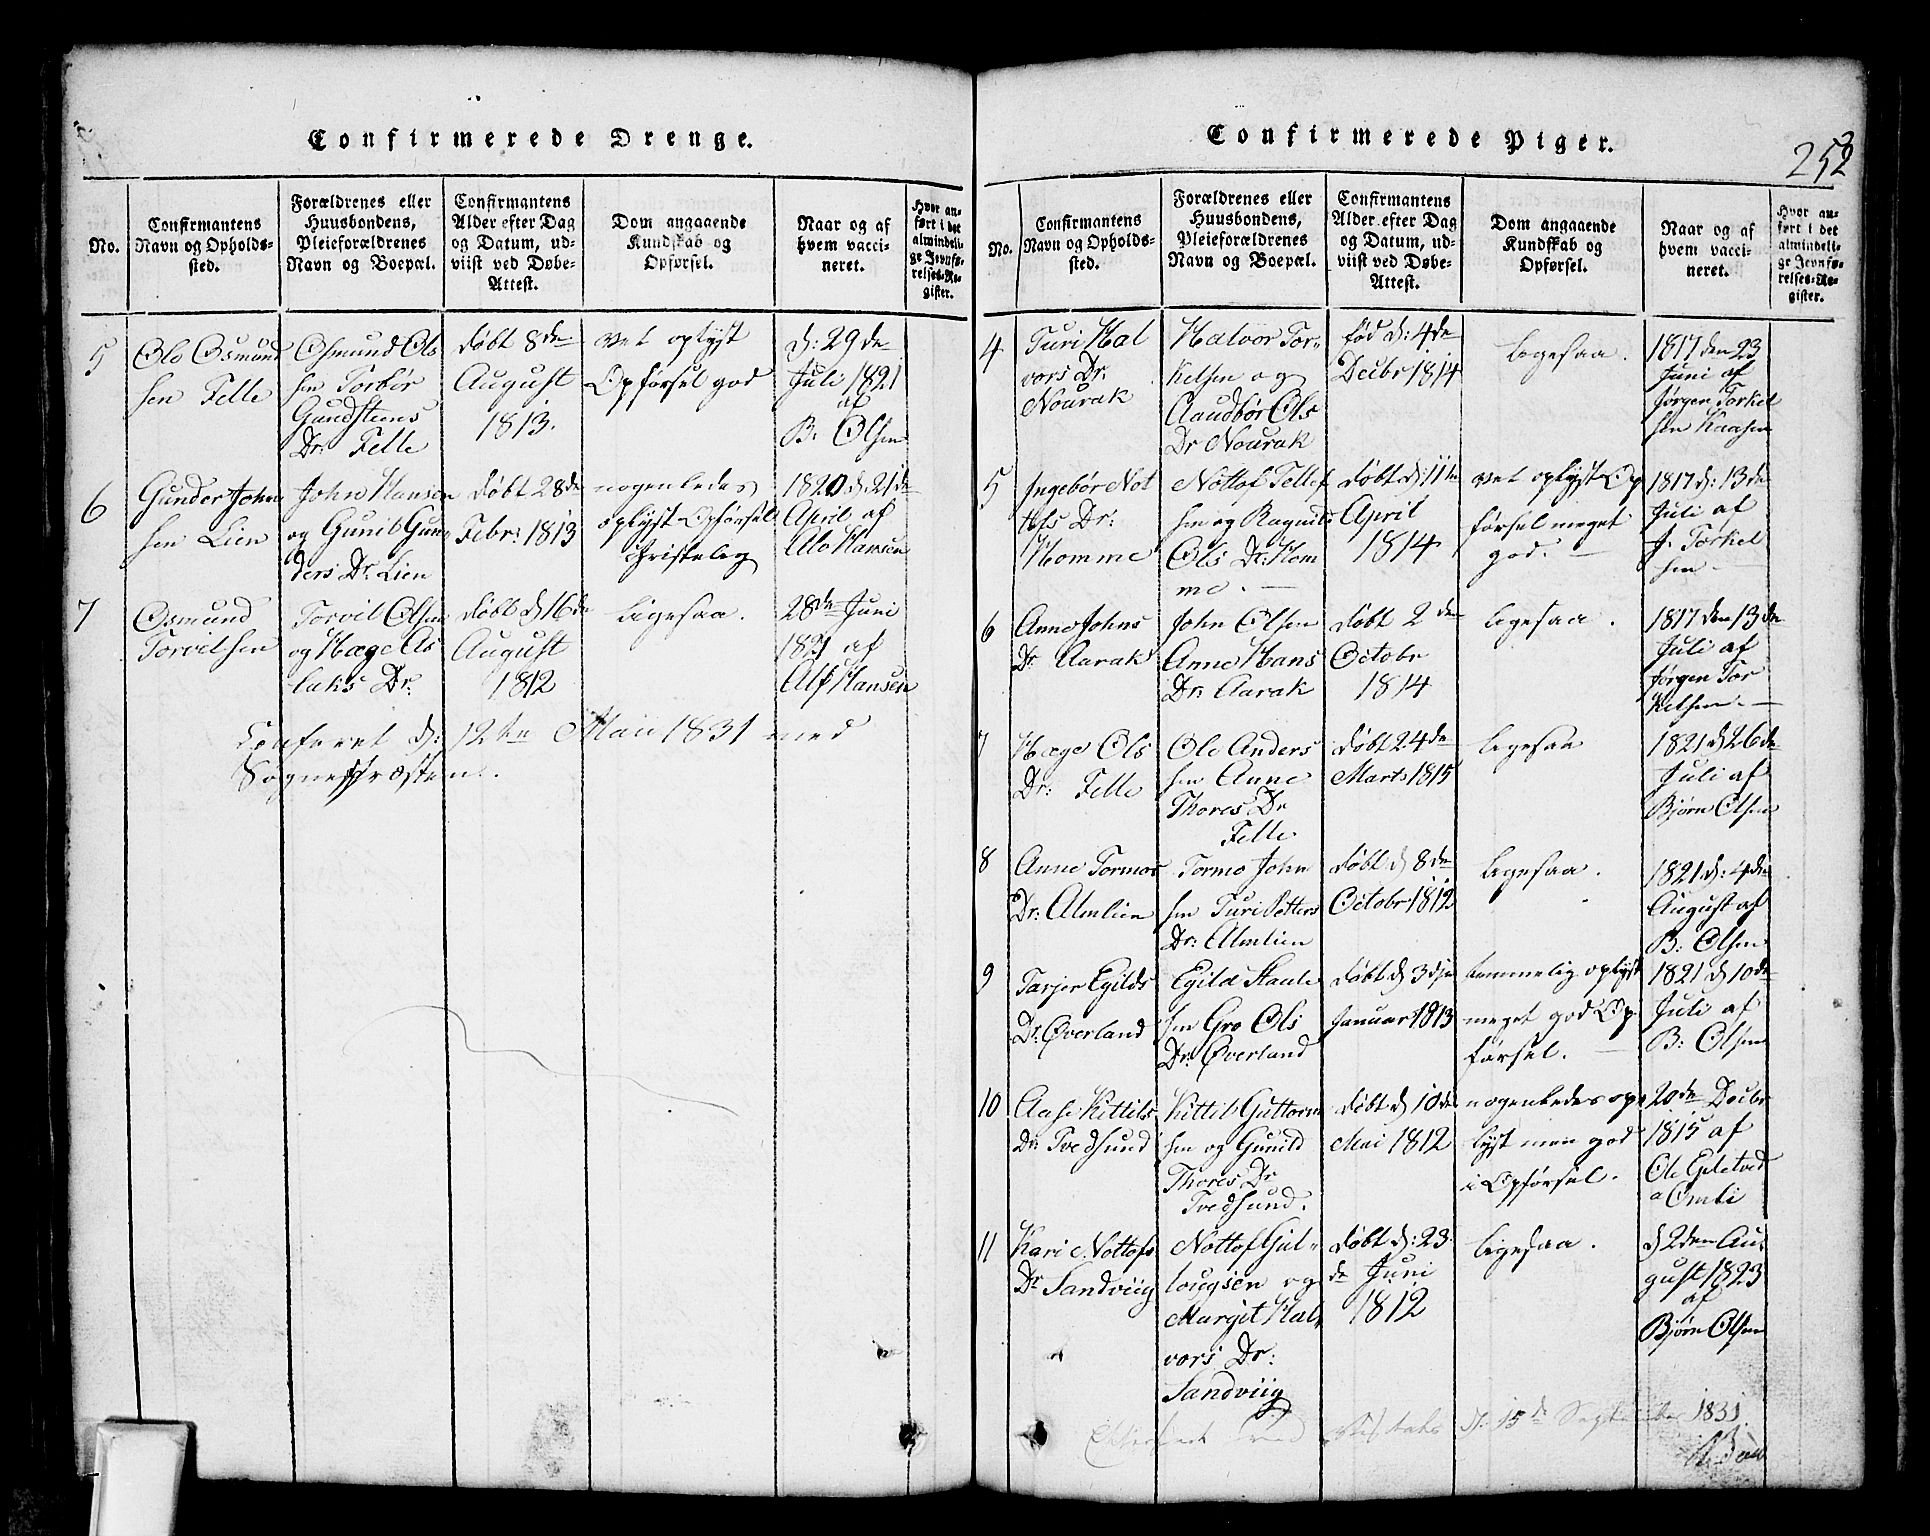 Confirmerede Drenge.
No.
Confirmantens
Navn og Opholds-
sted.
Forældrenes eller
Huusbondens,
Pleieforældrenes
Navn og Boepæl.
Confirmantens
Alder efter Dag
og Datum, ud-
viist ved Døbe-
Attest.
Dom angaaende
Kundskab og
Opførsel.
Naar og af
hvem vacci-
neret.
Hvor an-
ført i det
almindeli-
ge Jevnfø-
relses-Re-
gister.
5
Ole Osmund
sen Felle
Osmund Ols
sen Torbør
Gundsteens
Dr: Felle
døbt 8de
August
1813.
vel oplyst
Opførsel god
d: 29de
Juli 1821
af
B. Olsen
6
Gunder John
sen Lien
John Hansen
og Gunil Gun
ders Dr. Lien
døbt 28de
Febr: 1813
nogenledes
oplyst Opførsel
christelig
1820 d. 21de
April af
Alo Hansen
7
Osmund
Torvilsen
Torvil Olsen
og Hæge As
laks Dr.
døbt d 16de
August
1812
ligesaa.
28de Juni
1821 af
Alf Hansen
Confereret d: 12te Mai 1831 med
Sognepræsten.
Confirmerede Piger.
252
No.
Confirmantens
Navn og Opholds-
sted.
Forældrenes eller
Huusbondens,
Pleieforældrenes
Navn og Boepæl.
Confirmantens
Alder efter Dag
og Datum, ud-
viist ved Døbe-
Attest.
Dom angaaende
Kundskab og
Opførsel.
Naar og af
hvem vacci-
neret.
Hvor an-
ført i det
almindeli-
ge Jevnfø-
relses-Re-
gister.
4
Turi Hal
vors Dr.
Nourak
Halvor Tor-
kelsen og
Claudbør Ols
Dr Nourak
fød d: 4de
Decbr 1814
ligesaa.
1817 den 23
Juni af
Jørgen Torkel
sen Kaasen
5
Ingebør Not
tols Dr:
Homme
Nottof Tellef
sen og Ragnild
Ols Dr: Hom
me.
døbt d: 11te
April
1814
vel oplyst Op
førsel meget
god.
1817 d: 13de
Juli af
J. Torkel
sen
6
Anne Johns
Dr. Aarak
John Olsen
Anne Hans
Dr: Aarak
døbt 2den
Octobr
1814
ligesaa.
1817 den 13de
Juli af
Jørgen Tor
kelsen.
7
Hæge Ols
Dr: Felle
Ole Anders
sen Anne
Thores Dr
Felle
døbt 24de
Marts 1815
ligesaa
1821 d 26de
Juli af
Bjørn Olsen
8
Anne Tormos
Dr: Almlien
Tormo John
sen Turi Petters
Dr: Almlien
døbt d 8de
Octobr 1812
ligesaa.
1821 d: 4de
August af
B: Olsen
9
Tarjer Egilds
Dr. Øverland
Egild Staule
sen Gro Ols
Dr: Øverland
døbt d 3dje
Januar 1813
temmelig oplyst
meget god Op-
førsel.
1821 d 10de
Juli af
B: Olsen
10
Aase Kittils
Dr: Tvedsund
Kittil Guttorm
sen og Gunild
Thores Dr
Tvedsund.
døbt d 10de
Mai 1812
nogenledes op-
lyst men god
i Opførsel.
20de Decbr
1815 af
Ole
11
Kari Nottofs
Dr Sandviig
Nottof Gul-
lougsen og
Margit Hal-
vors Dr:
Sandviig
døbt d: 23
de Juni
1812
ligesaa.
d 2den Au-
gust 1823
af
Bjørn Olsen
Efterseet ved Visitats d: 15de September 1831.